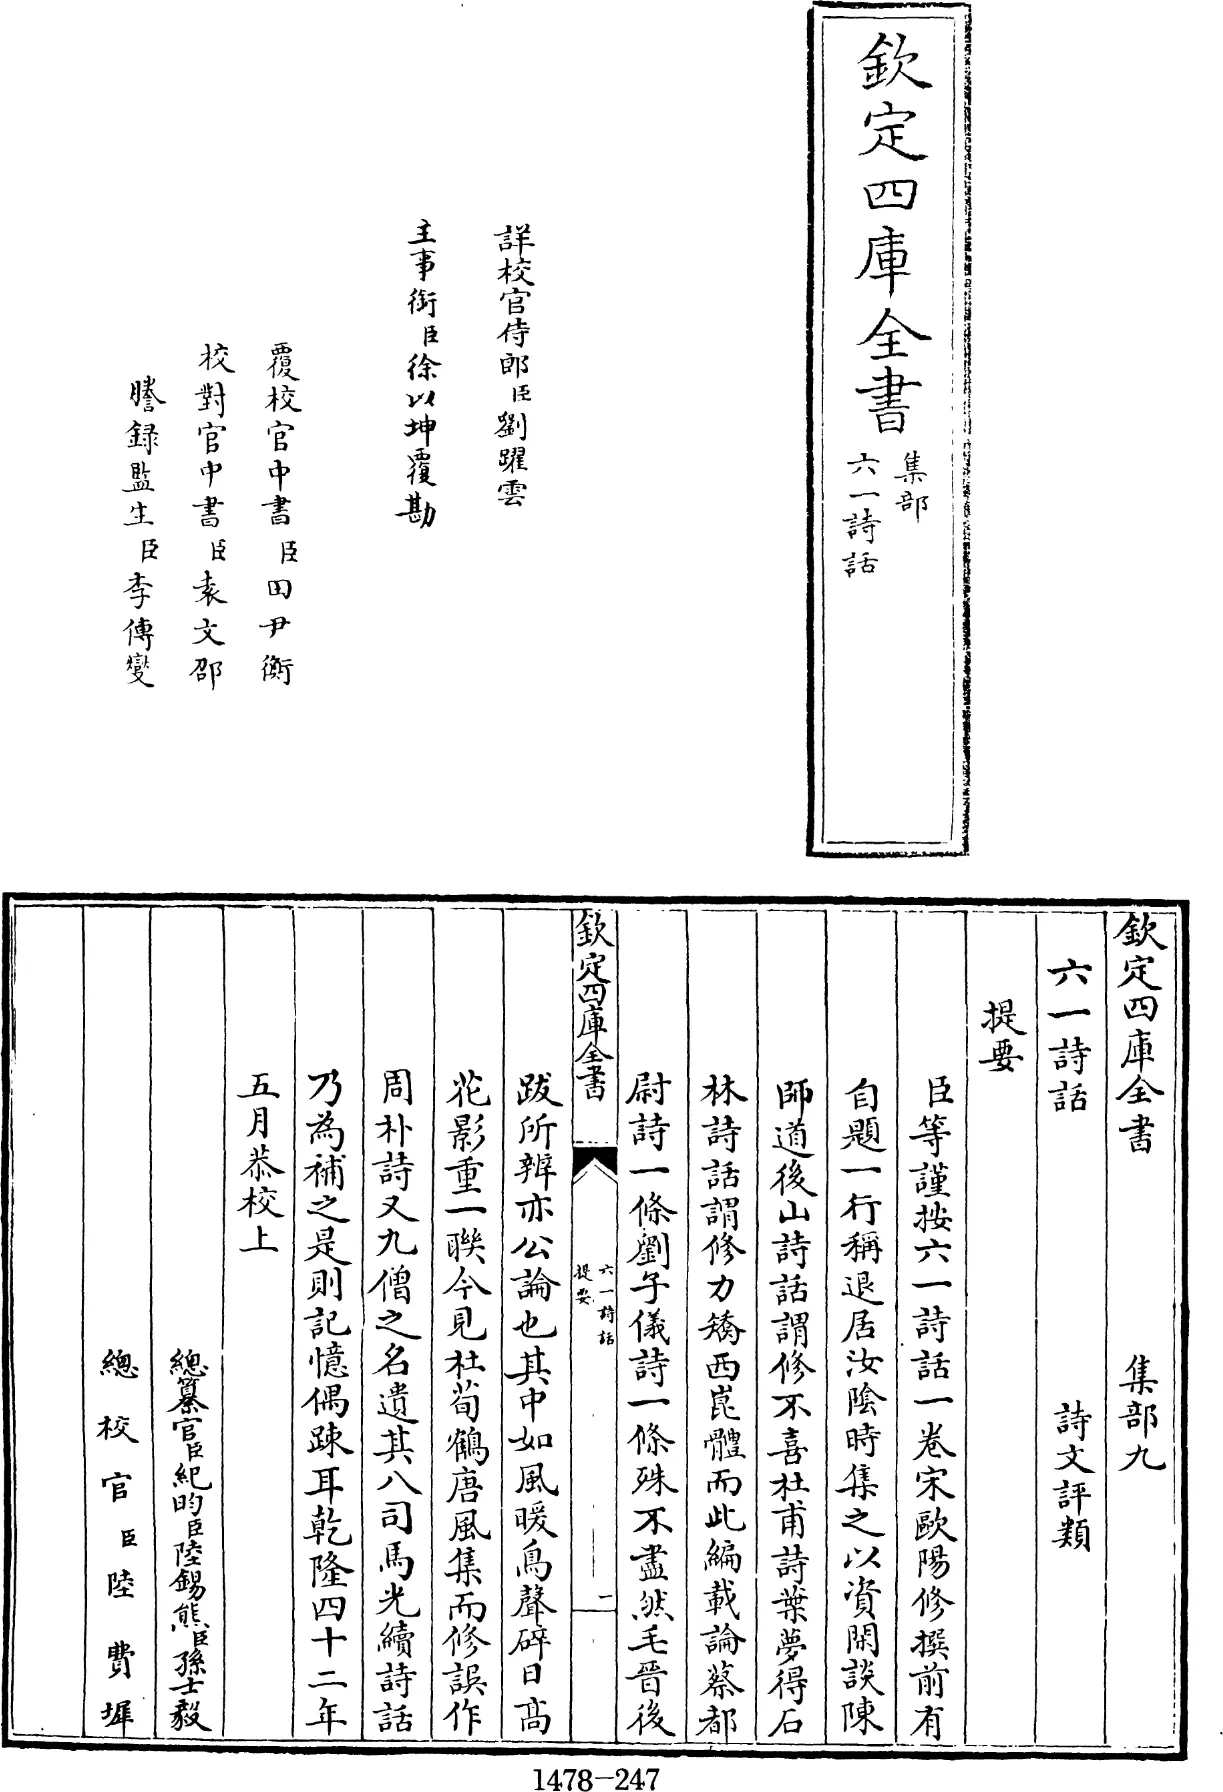 欽定四庫全書
集部
六一詩話
詳校官侍郎臣劉躍雲
主事銜臣徐以坤覆勘
覆校官中書臣田尹衡
校對官中書臣袁文邵
謄錄監生臣李傳夔
欽定四庫全書 集部九
六一詩話 詩文評類
提要
臣等謹按六一詩話一卷宋歐陽修撰前有
自題一行稱退居汝陰時集之以資閑談陳
師道後山詩話謂修不喜杜甫詩葉夢得石
林詩話謂修力矯西崑體而此編載論蔡都
尉詩一條劉子儀詩一條殊不盡然毛晉後
欽定四庫全書
六一詩話
提要
一
跋所辨亦公論也其中如風暖鳥聲碎日高
花影重一聯今見杜荀鶴唐風集而修誤作
周朴詩又九僧之名遺其八司馬光續詩話
乃為補之是則記憶偶踈耳乾隆四十二年
五月恭校上
總纂官臣紀昀臣陸錫熊臣孫士毅
總校官臣陸費墀
1478-247